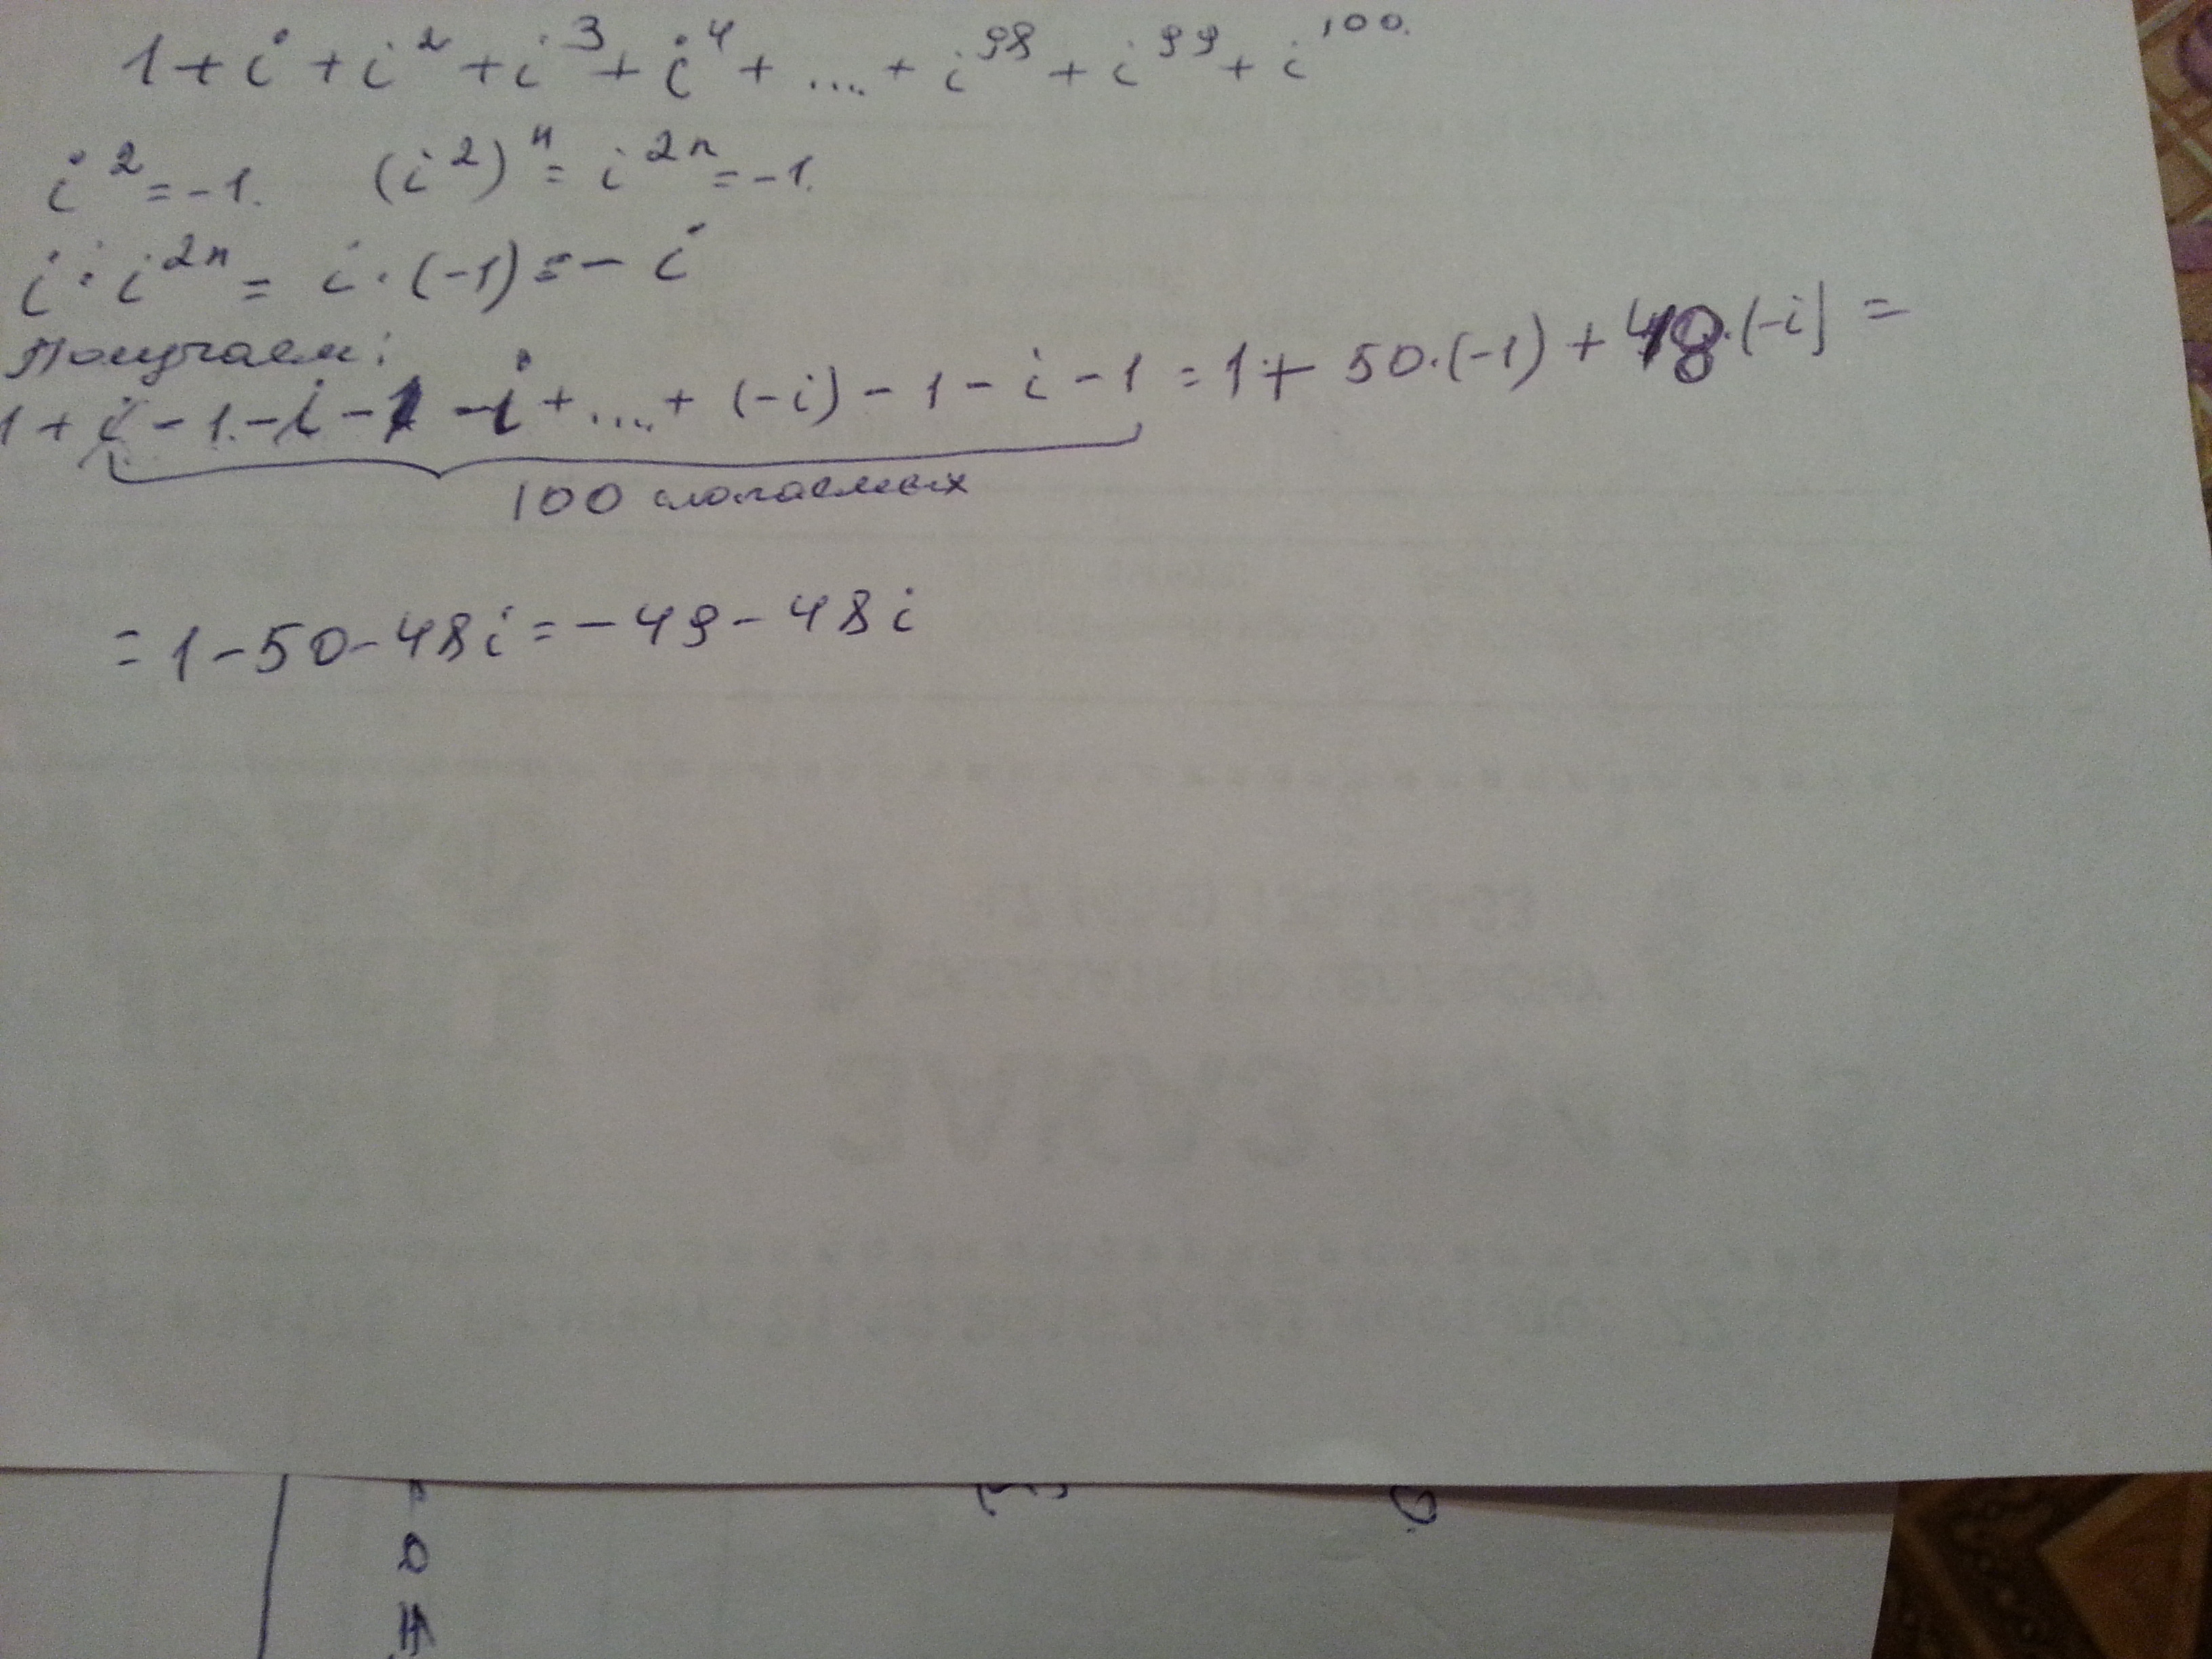 1 + i + i² + i³ + i⁴ + .... + i⁹⁸ + i⁹⁹ + i¹⁰⁰.
i² = -1. (i²)ⁿ = i²ⁿ = -1.
i · i²ⁿ = i · (-1) = - i
Получаем:
1 + i - 1 - i - 1 - i + .... + (-i) - 1 - i - 1 = 1 + 50·(-1) + 48·(-i) =
100 слагаемых
= 1 - 50 - 48i = - 49 - 48i